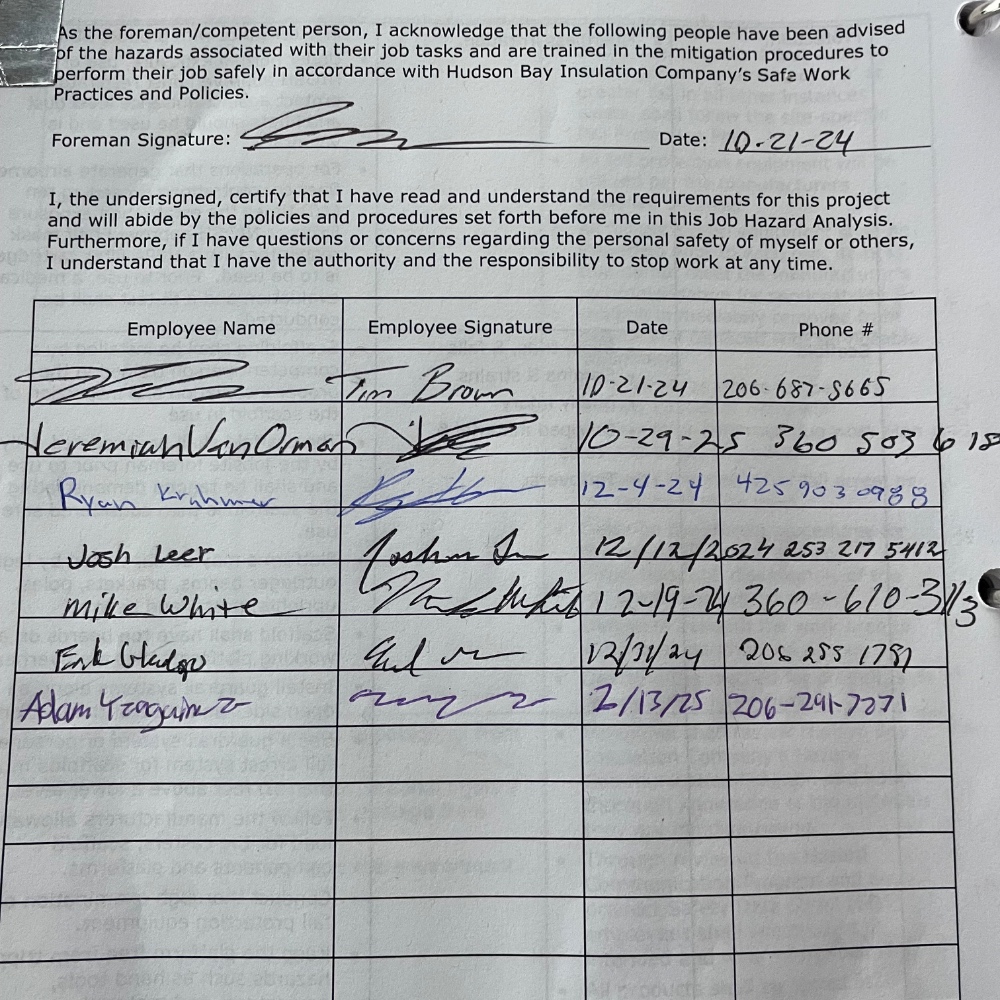 As the foreman/competent person, I acknowledge that the following people have been advised
of the hazards associated with their job tasks and are trained in the mitigation procedures to
perform their job safely in accordance with Hudson Bay Insulation Company's Safe Work
Practices and Policies.
Foreman Signature: Date: 10-21-24
I, the undersigned, certify that I have read and understand the requirements for this project
and will abide by the policies and procedures set forth before me in this Job Hazard Analysis.
Furthermore, if I have questions or concerns regarding the personal safety of myself or others,
I understand that I have the authority and the responsibility to stop work at any time.
Employee Name Employee Signature Date Phone #
Tim Brown 10-21-24 206-687-5665
Jeremiah VanOrman 10-29-25 360 503 618
Ryan 12-4-24 425 903 0988
Josh Leer 12/12/2024 253 217 5412
Mike White 12-19-24 360-610-3113
Erik 12/31/24 206 255 1781
Adam 2/13/25 206-291-7271